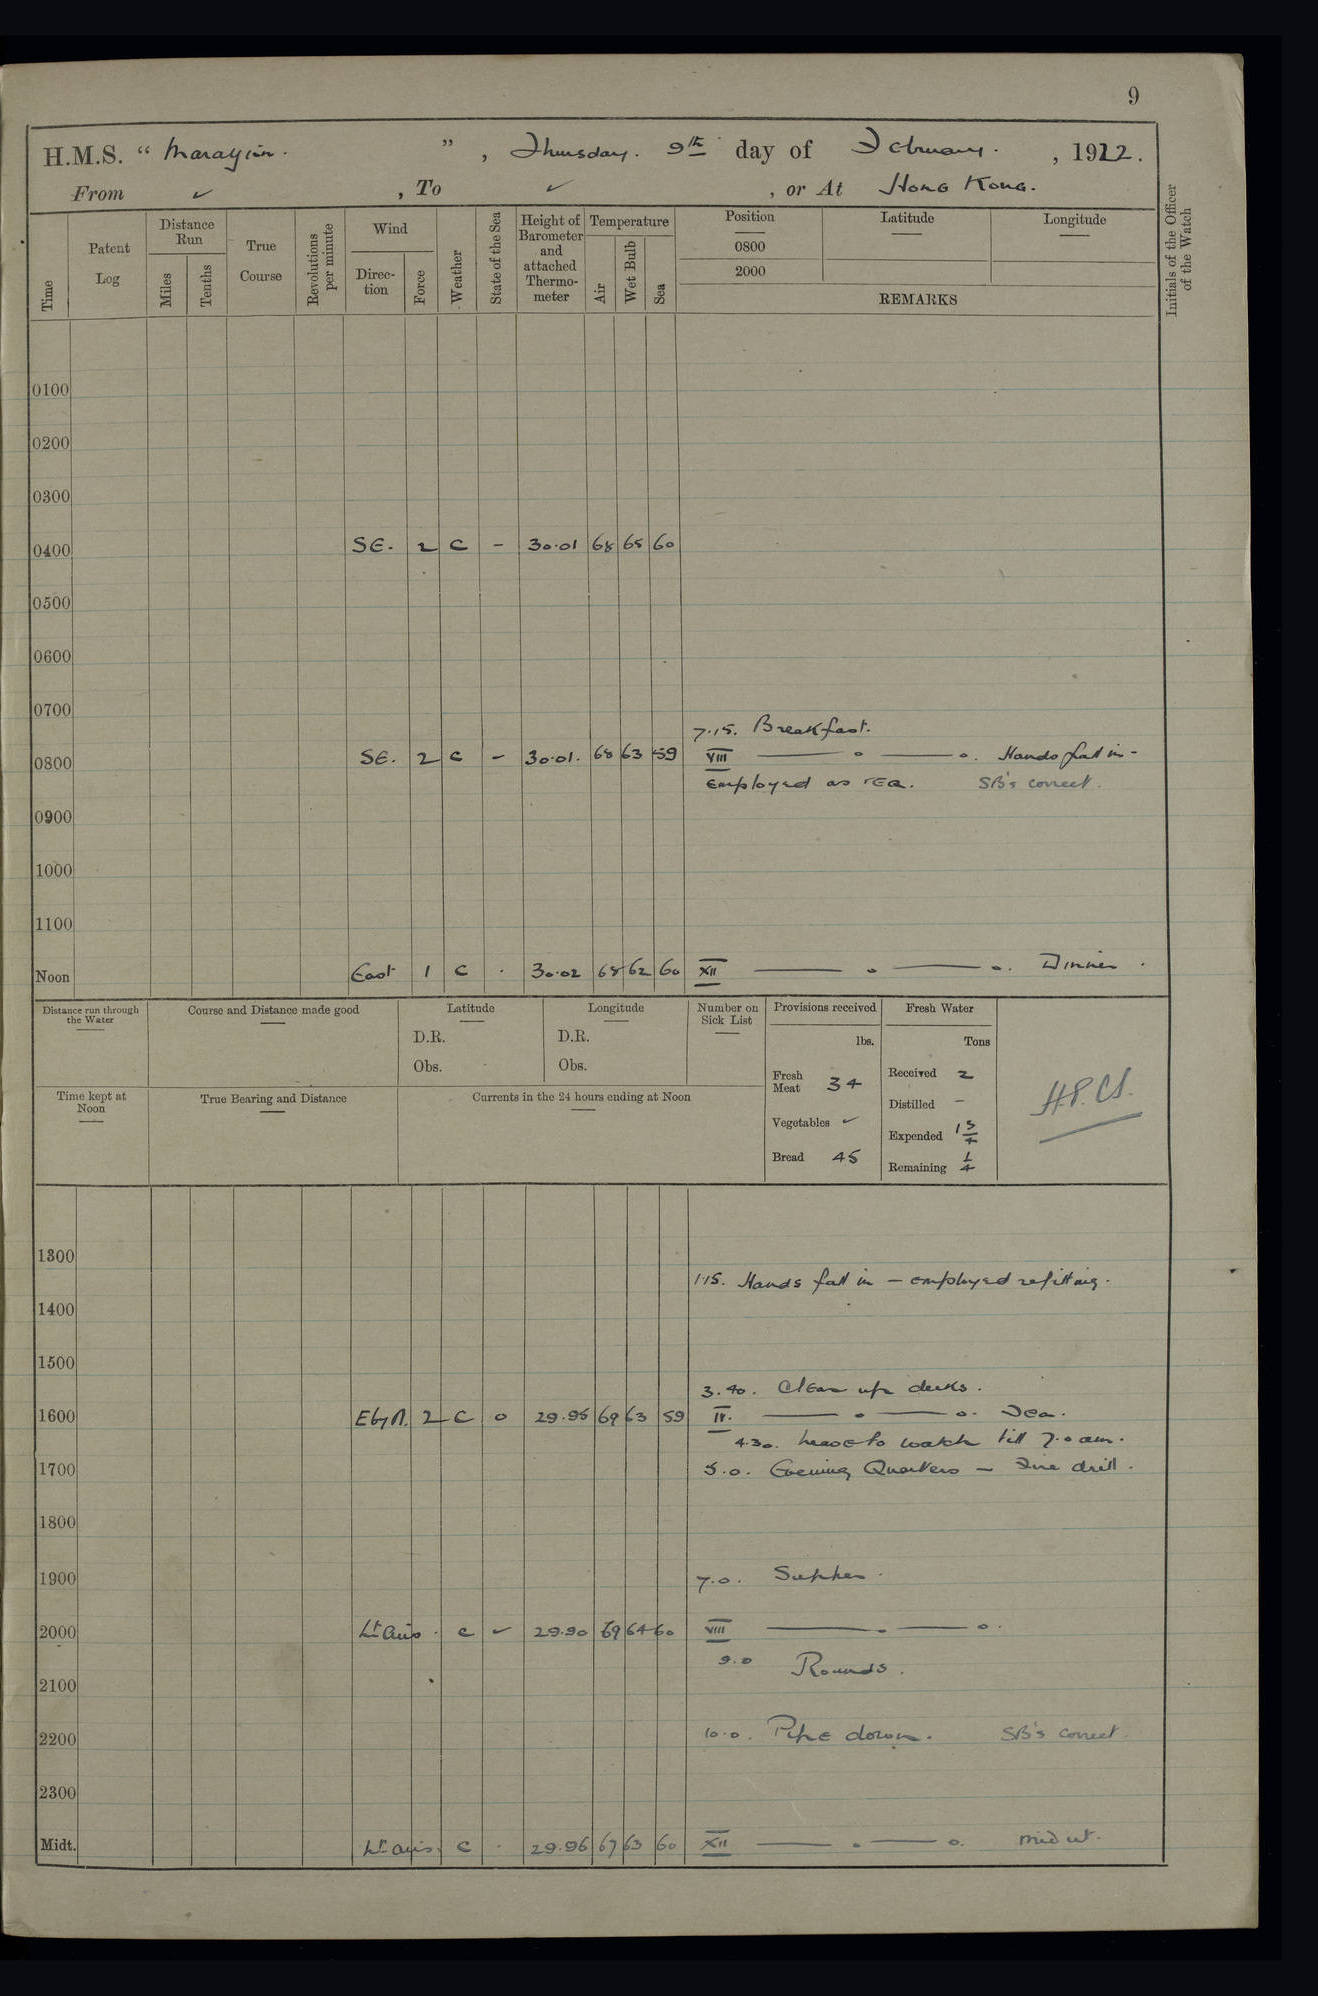 9
H.M.S. " Marazion. ", Thursday. 9th day of February. , 1922.
From ✓ , To ✓ , or At Hong Kong.
Time Patent Log Distance Run Miles Tenths True Course Revolutions per minute Wind Direc-tion Force Weather State of the Sea Height of Barometer and attached Thermo-meter Temperature Air Wet Bulb Sea Position 0800 2000 Latitude Longitude REMARKS Initials of the Officer of the Watch
0100
0200
0300
0400 SE. 2 C - 30.01 68 65 60
0500
0600
0700
7.15. Breakfast.
0800 SE. 2 C - 30.01. 68 63 59 VIII —— o —— o. Hands fall in -
Employed as req. SB's correct.
0900
1000
1100
Noon East 1 C . 30.02 68 62 60 XII —— o —— o. Dinner.
Distance run through the Water Course and Distance made good Latitude Longitude Number on Sick List Provisions received Fresh Water
D.R. D.R. lbs. Tons
Obs. Obs. Fresh Meat 34 Received 2
Time kept at Noon True Bearing and Distance Currents in the 24 hours ending at Noon Distilled -
Vegetables ✓ Expended 1 3/4
Bread 45 Remaining 1/4
1300
1.15. Hands fall in - employed refitting.
1400
1500
3.40. Clear up decks.
1600 E by N. 2 C o 29.95 69 63 59 IV. —— o —— o. Tea.
4.30. Leave to watch till 7.0 am.
1700 5.0. Evening Quarters - Fire drill.
1800
1900 7.0. Supper.
2000 Lt airs. c ✓ 29.90 69 64 60 VIII —— o —— o.
9.0 Rounds.
2100
2200 10.0. Pipe down. SB's correct.
2300
Midt. Lt airs. C . 29.96 67 63 60 XII —— o —— o.